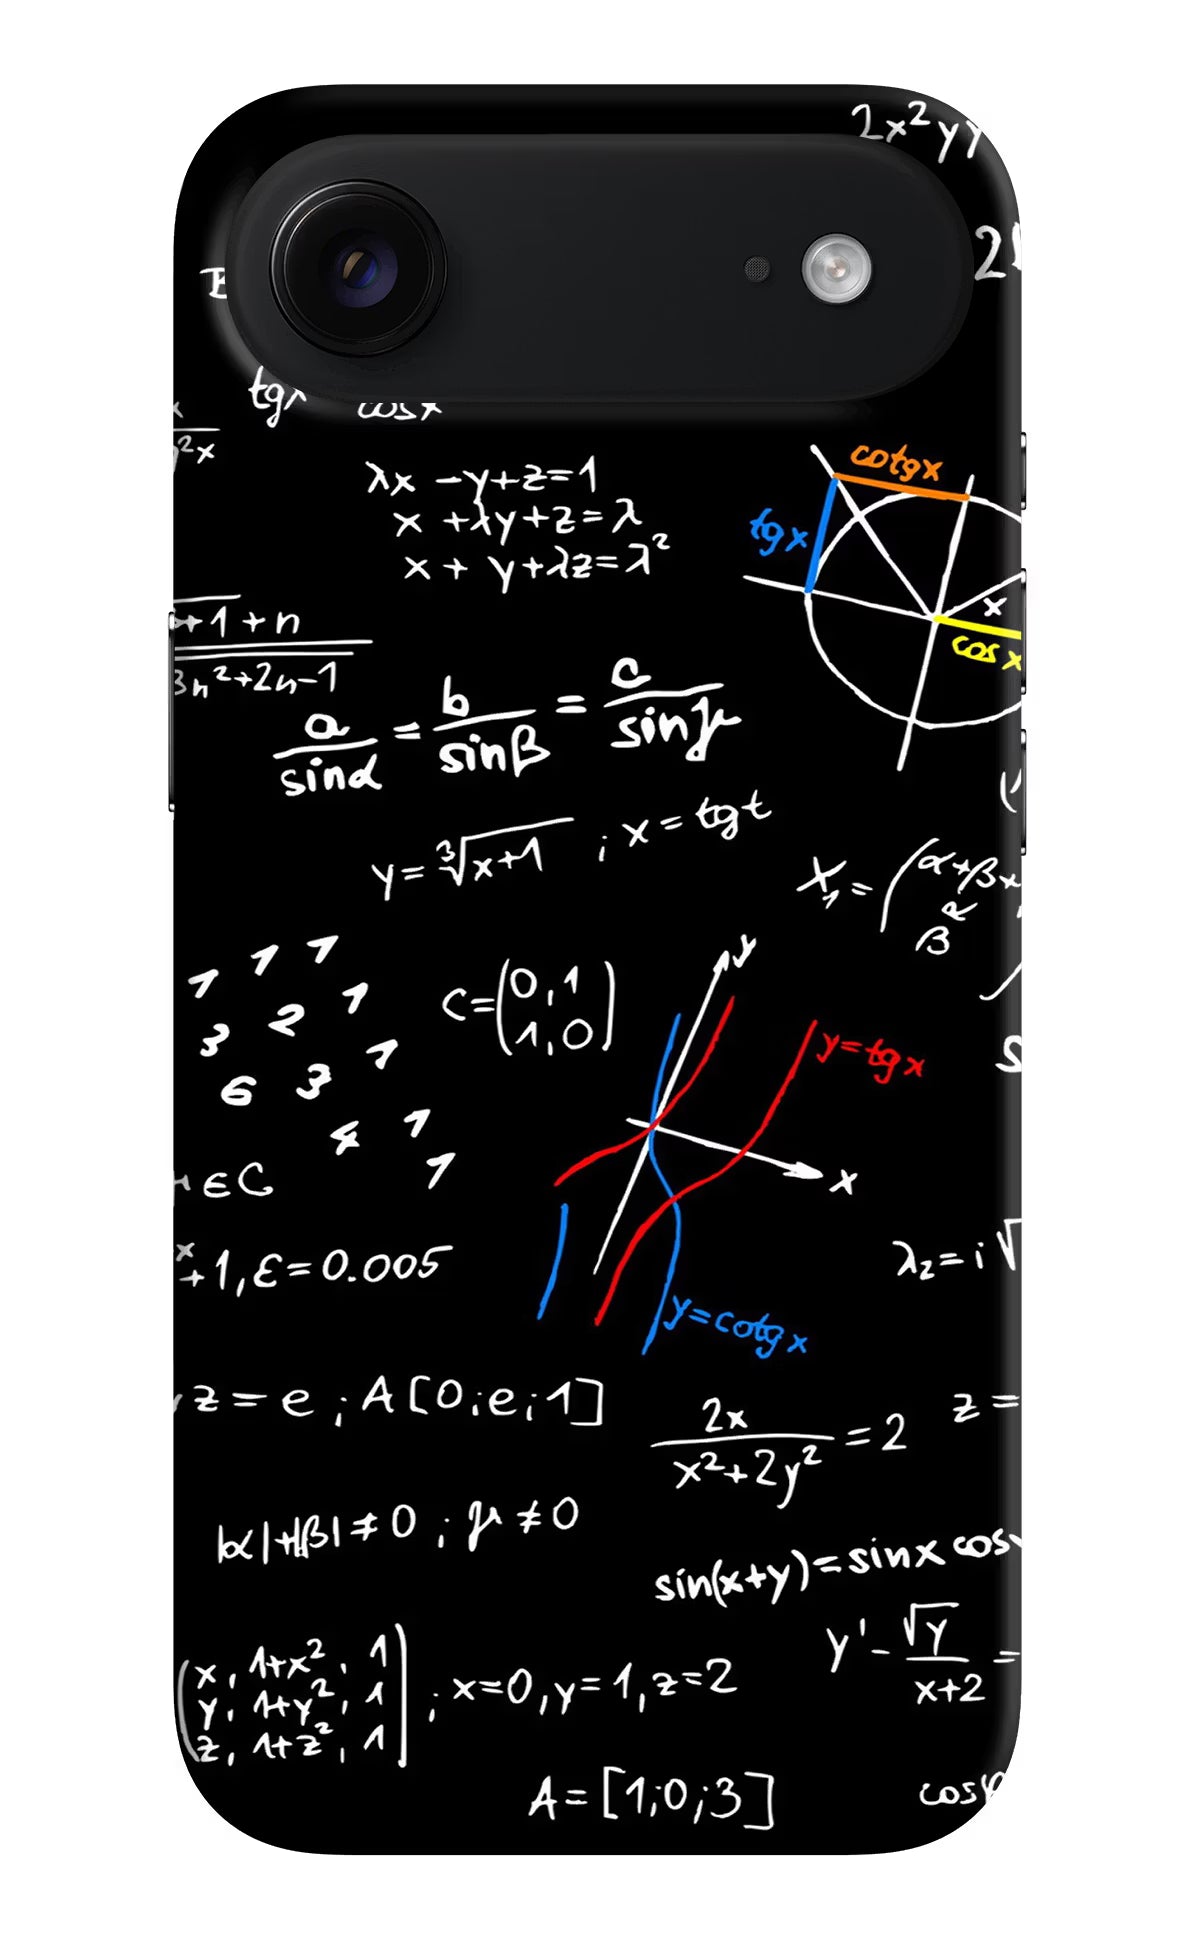 2x²yy
2
tgx
cosx
²x
λx -y+z=1
x +λy+z=λ
x + y+λz=λ²
cotgx
tgx
x
cos x
+1+n
3n²+2n-1
a/sinα = b/sinβ = c/sinγ
y=∛(x+1) ; x=tgt
X₁=(α+β+
β α
1 1 1
3 2 1
6 3 1
4 1
1
C=(0,1
1,0)
y
y=tgx
x
y=cotgx
∈C
x
+1,ε=0.005
λ₂=i√
z=e ; A[0;e;1]
2x/(x²+2y²)=2
z=
|α|+|β|≠0 ; μ≠0
sin(x+y)=sinx cos
y'-√y/(x+2)=
(x, 1+x², 1
y, 1+y², 1
z, 1+z², 1) ; x=0,y=1,z=2
A=[1;0;3]
cosφ